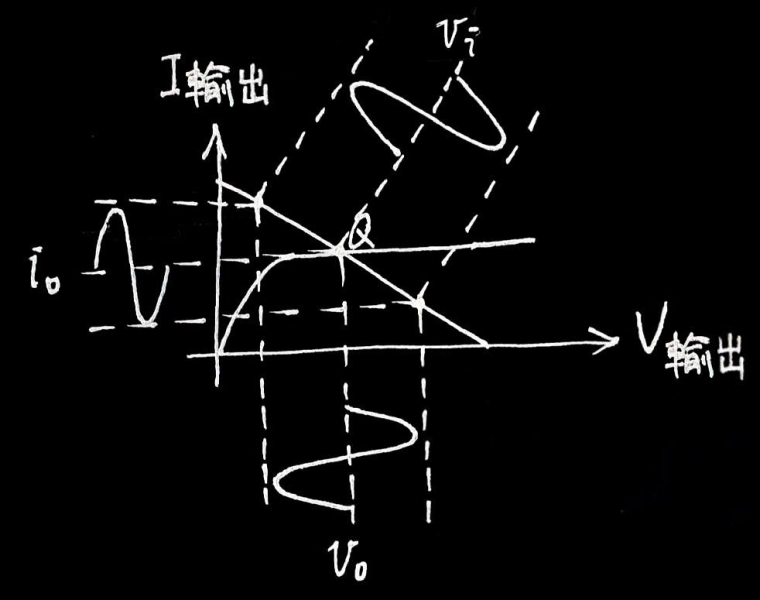 vi
I輸出
Q
io
V輸出
vo